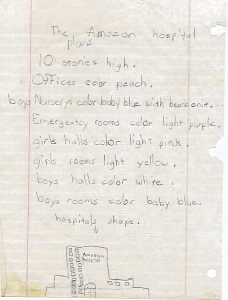 The Amazon hospital
plans
10 stories high.
Offices color peach.
boys Nurserys color baby blue with bears on it.
Emergency rooms color light purple.
girls halls color light pink.
girls rooms light yellow.
boys halls color white.
boys rooms color baby blue.
hospitals shape.
Amazon
Hospital